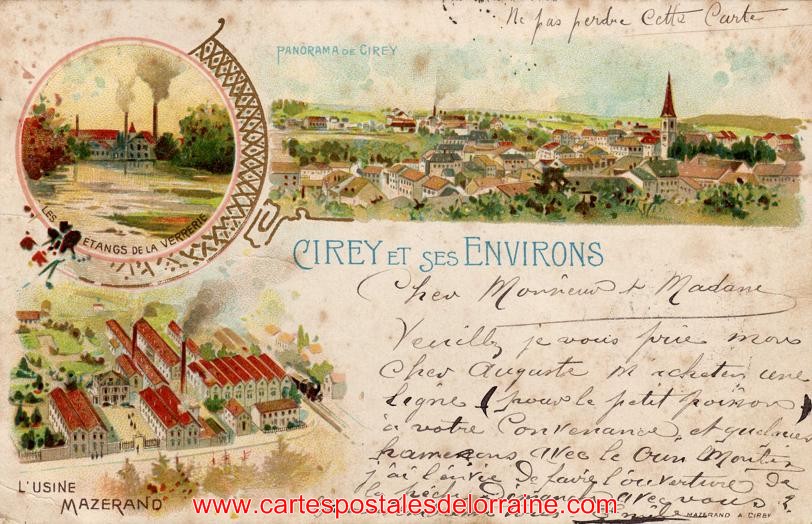 Ne pas perdre Cette Carte
PANORAMA DE CIREY
LES ETANGS DE LA VERRERIE
CIREY ET SES ENVIRONS
Cher Monsieur & Madame
Veuillez je vous prie mons
Cher Auguste m acheter une
Ligne (pour le petit poisson)
à votre Convenance, et quelques
hameçons avec le Crin
j'ai l'envie de faire l'ouverture de
la pêche avec vous ?
L'USINE
MAZERAND
www.cartespostalesdelorraine.com
MAZERAND A. CIREY